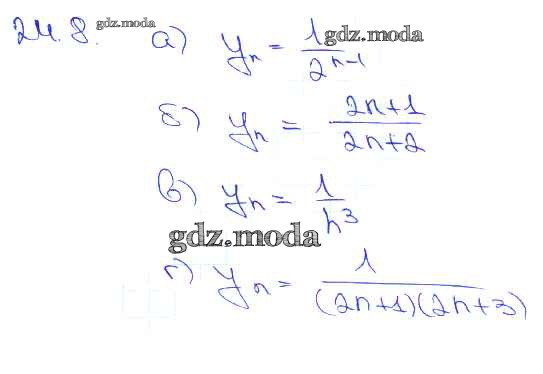 24.8. gdz.moda а) yₙ = 1/2ⁿ⁻¹ gdz.moda
б) yₙ = (2n+1)/(2n+2)
в) yₙ = 1/n³
gdz.moda
г) yₙ = 1/((2n+1)(2n+3))